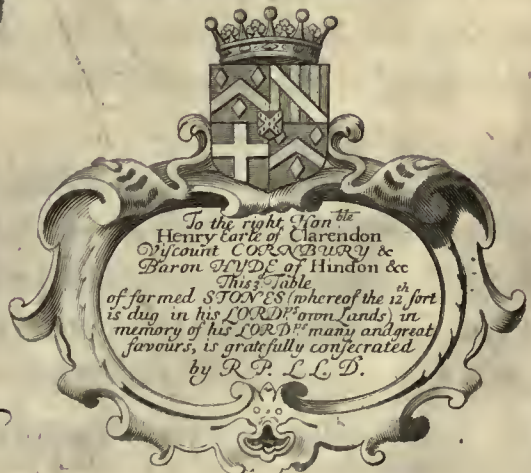 To the right Hon^ble
Henry Earle of Clarendon
Viſcount CORNBURY &
Baron HYDE of Hindon &c
This 3 Table
of formed STONES (whereof the 12^th ſort
is dug in his LORD^ps own Lands) in
memory of his LORD^ps many and great
favours, is gratefully conſecrated
by R. P. L. L. D.